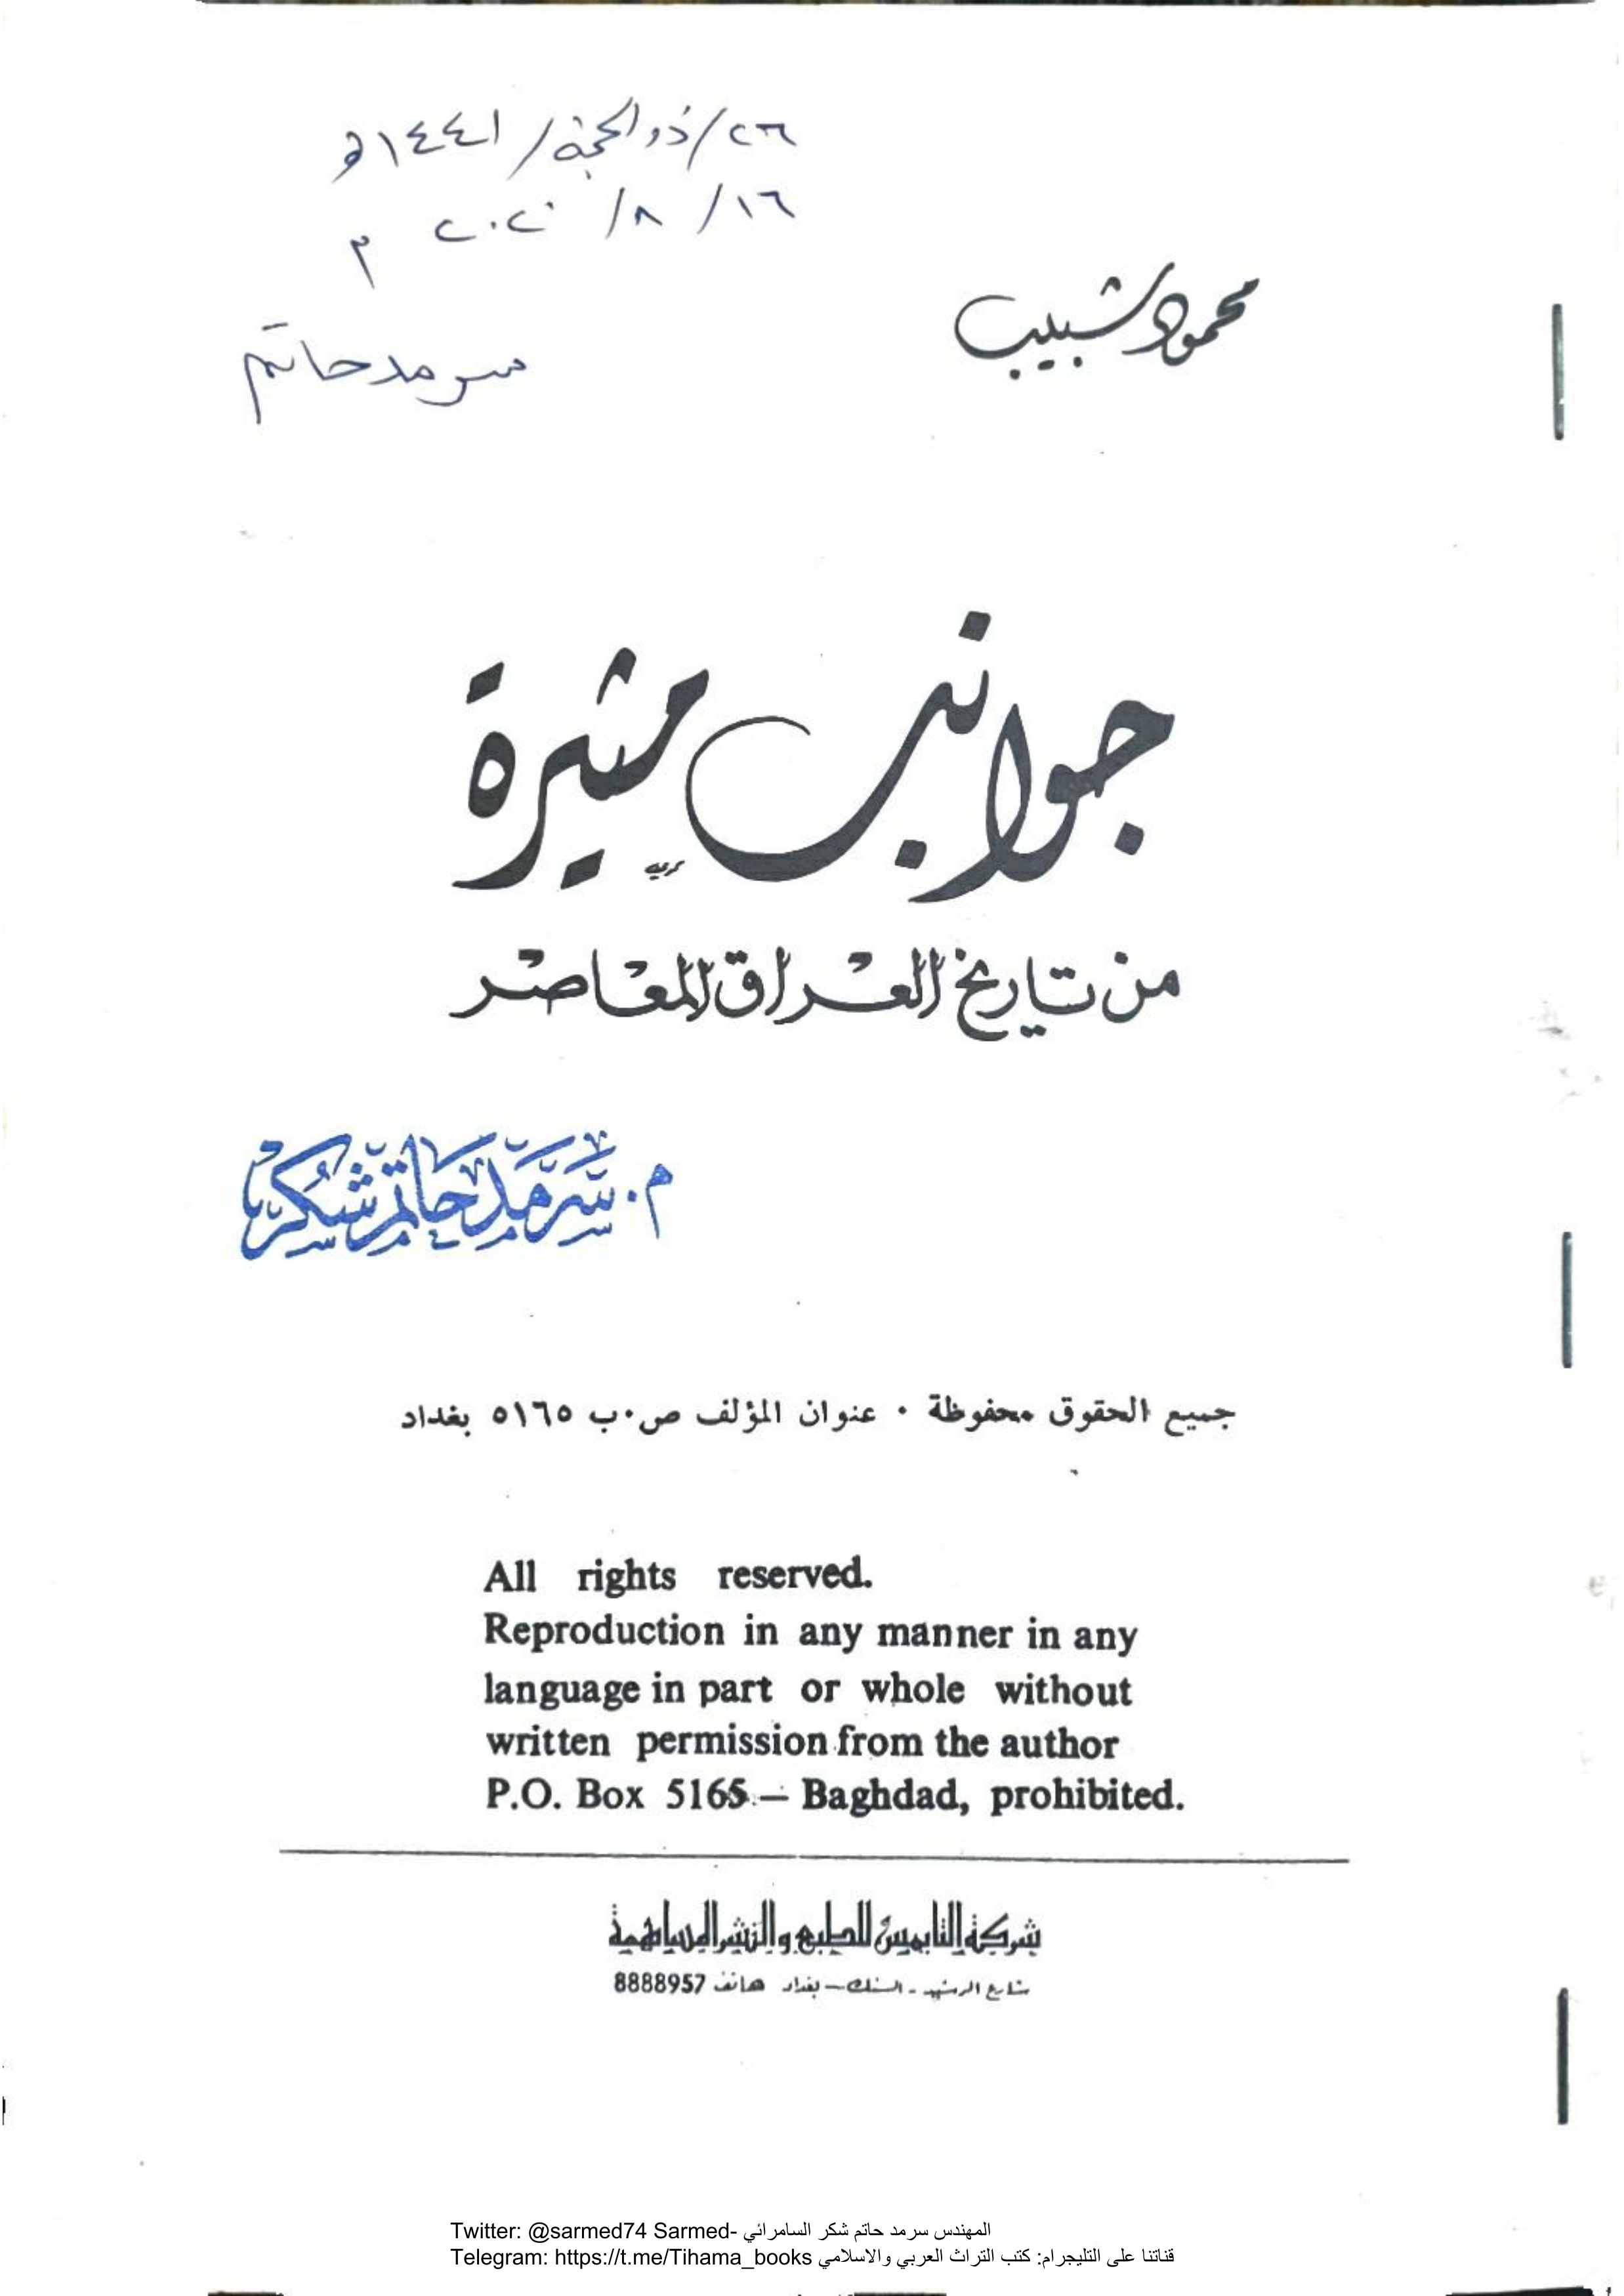 ٢٦/ذو الحجة/١٤٤١هـ
١٦/٨/٢٠٢٠ م
سرمد حاتم
محمود شبيب
جوانب مثيرة
من تاريخ العراق المعاصر
م. سَرمَد حَاتم شُكر
جميع الحقوق محفوظة ٠ عنوان المؤلف ص٠ب ٥١٦٥ بغداد
All rights reserved.
Reproduction in any manner in any
language in part or whole without
written permission from the author
P.O. Box 5165 – Baghdad, prohibited.
شركة التايمس للطبع والنشر المساهمة
شارع الرشيد - السنك - بغداد هاتف 8888957
Twitter: @sarmed74 Sarmed- المهندس سرمد حاتم شكر السامرائي
Telegram: https://t.me/Tihama_books قناتنا على التليجرام: كتب التراث العربي والاسلامي